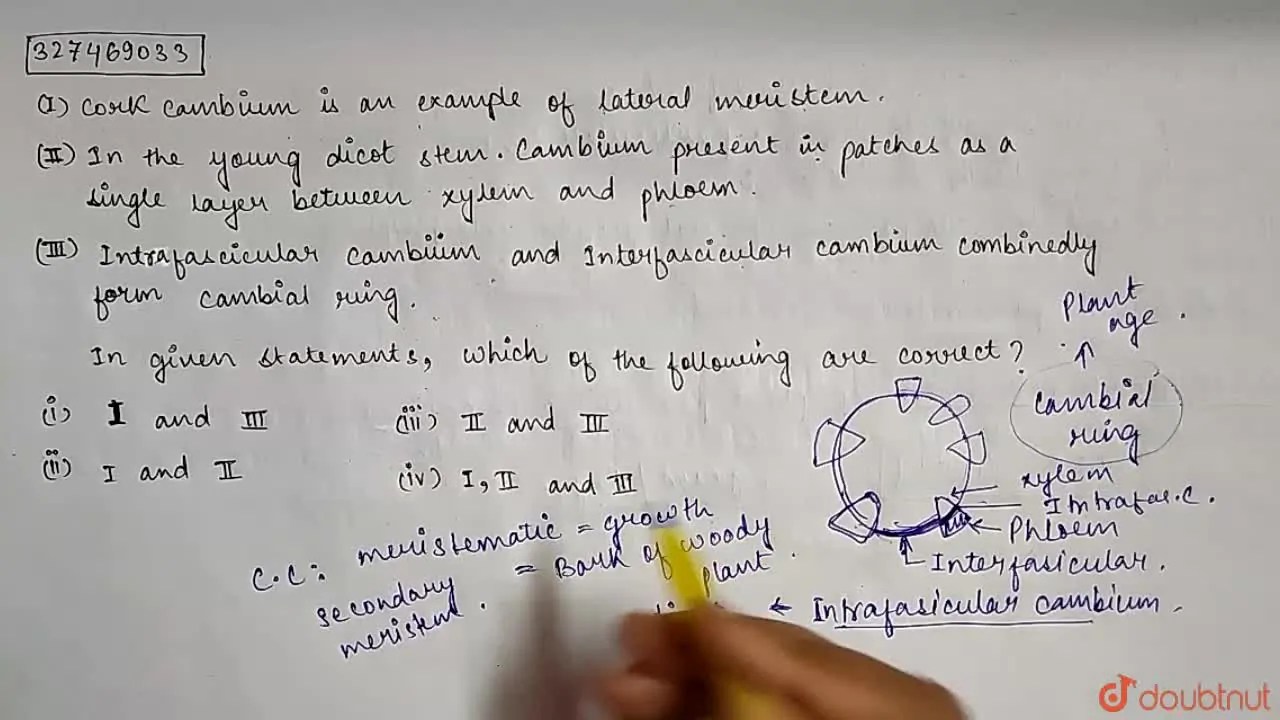 327469033
(I) Cork cambium is an example of lateral meristem.
(II) In the young dicot stem. Cambium present in patches as a
single layer between xylem and phloem.
(III) Intrafascicular cambium and Interfascicular cambium combinedly
form cambial ring.
In given statements, which of the following are correct?
(i) I and III
(iii) II and III
(ii) I and II
(iv) I, II and III
Plant
age.
Cambial
ring
xylem
Intrafas.C.
Phloem
Interfasicular.
← Intrafasicular cambium.
C.C: meristematic = growth
= Bark of woody
plant.
secondary
meristem.
doubtnut